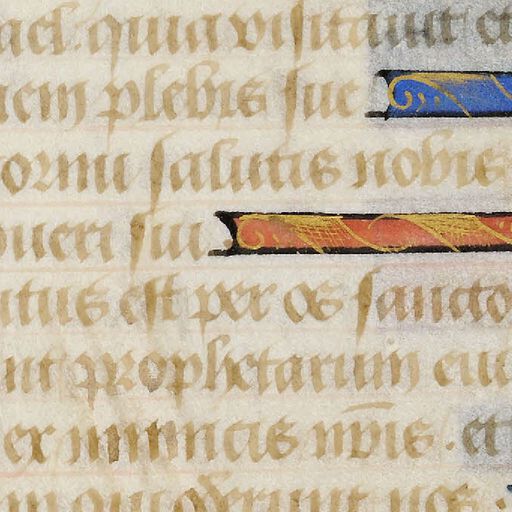 ael. quia visitauit et
nem plebis sue
ornu salutis nobis
pueri sui
utus est per os sancto
unt prophetarum eiu
ex inimicis nr̄is. et
m qui oderunt nos: